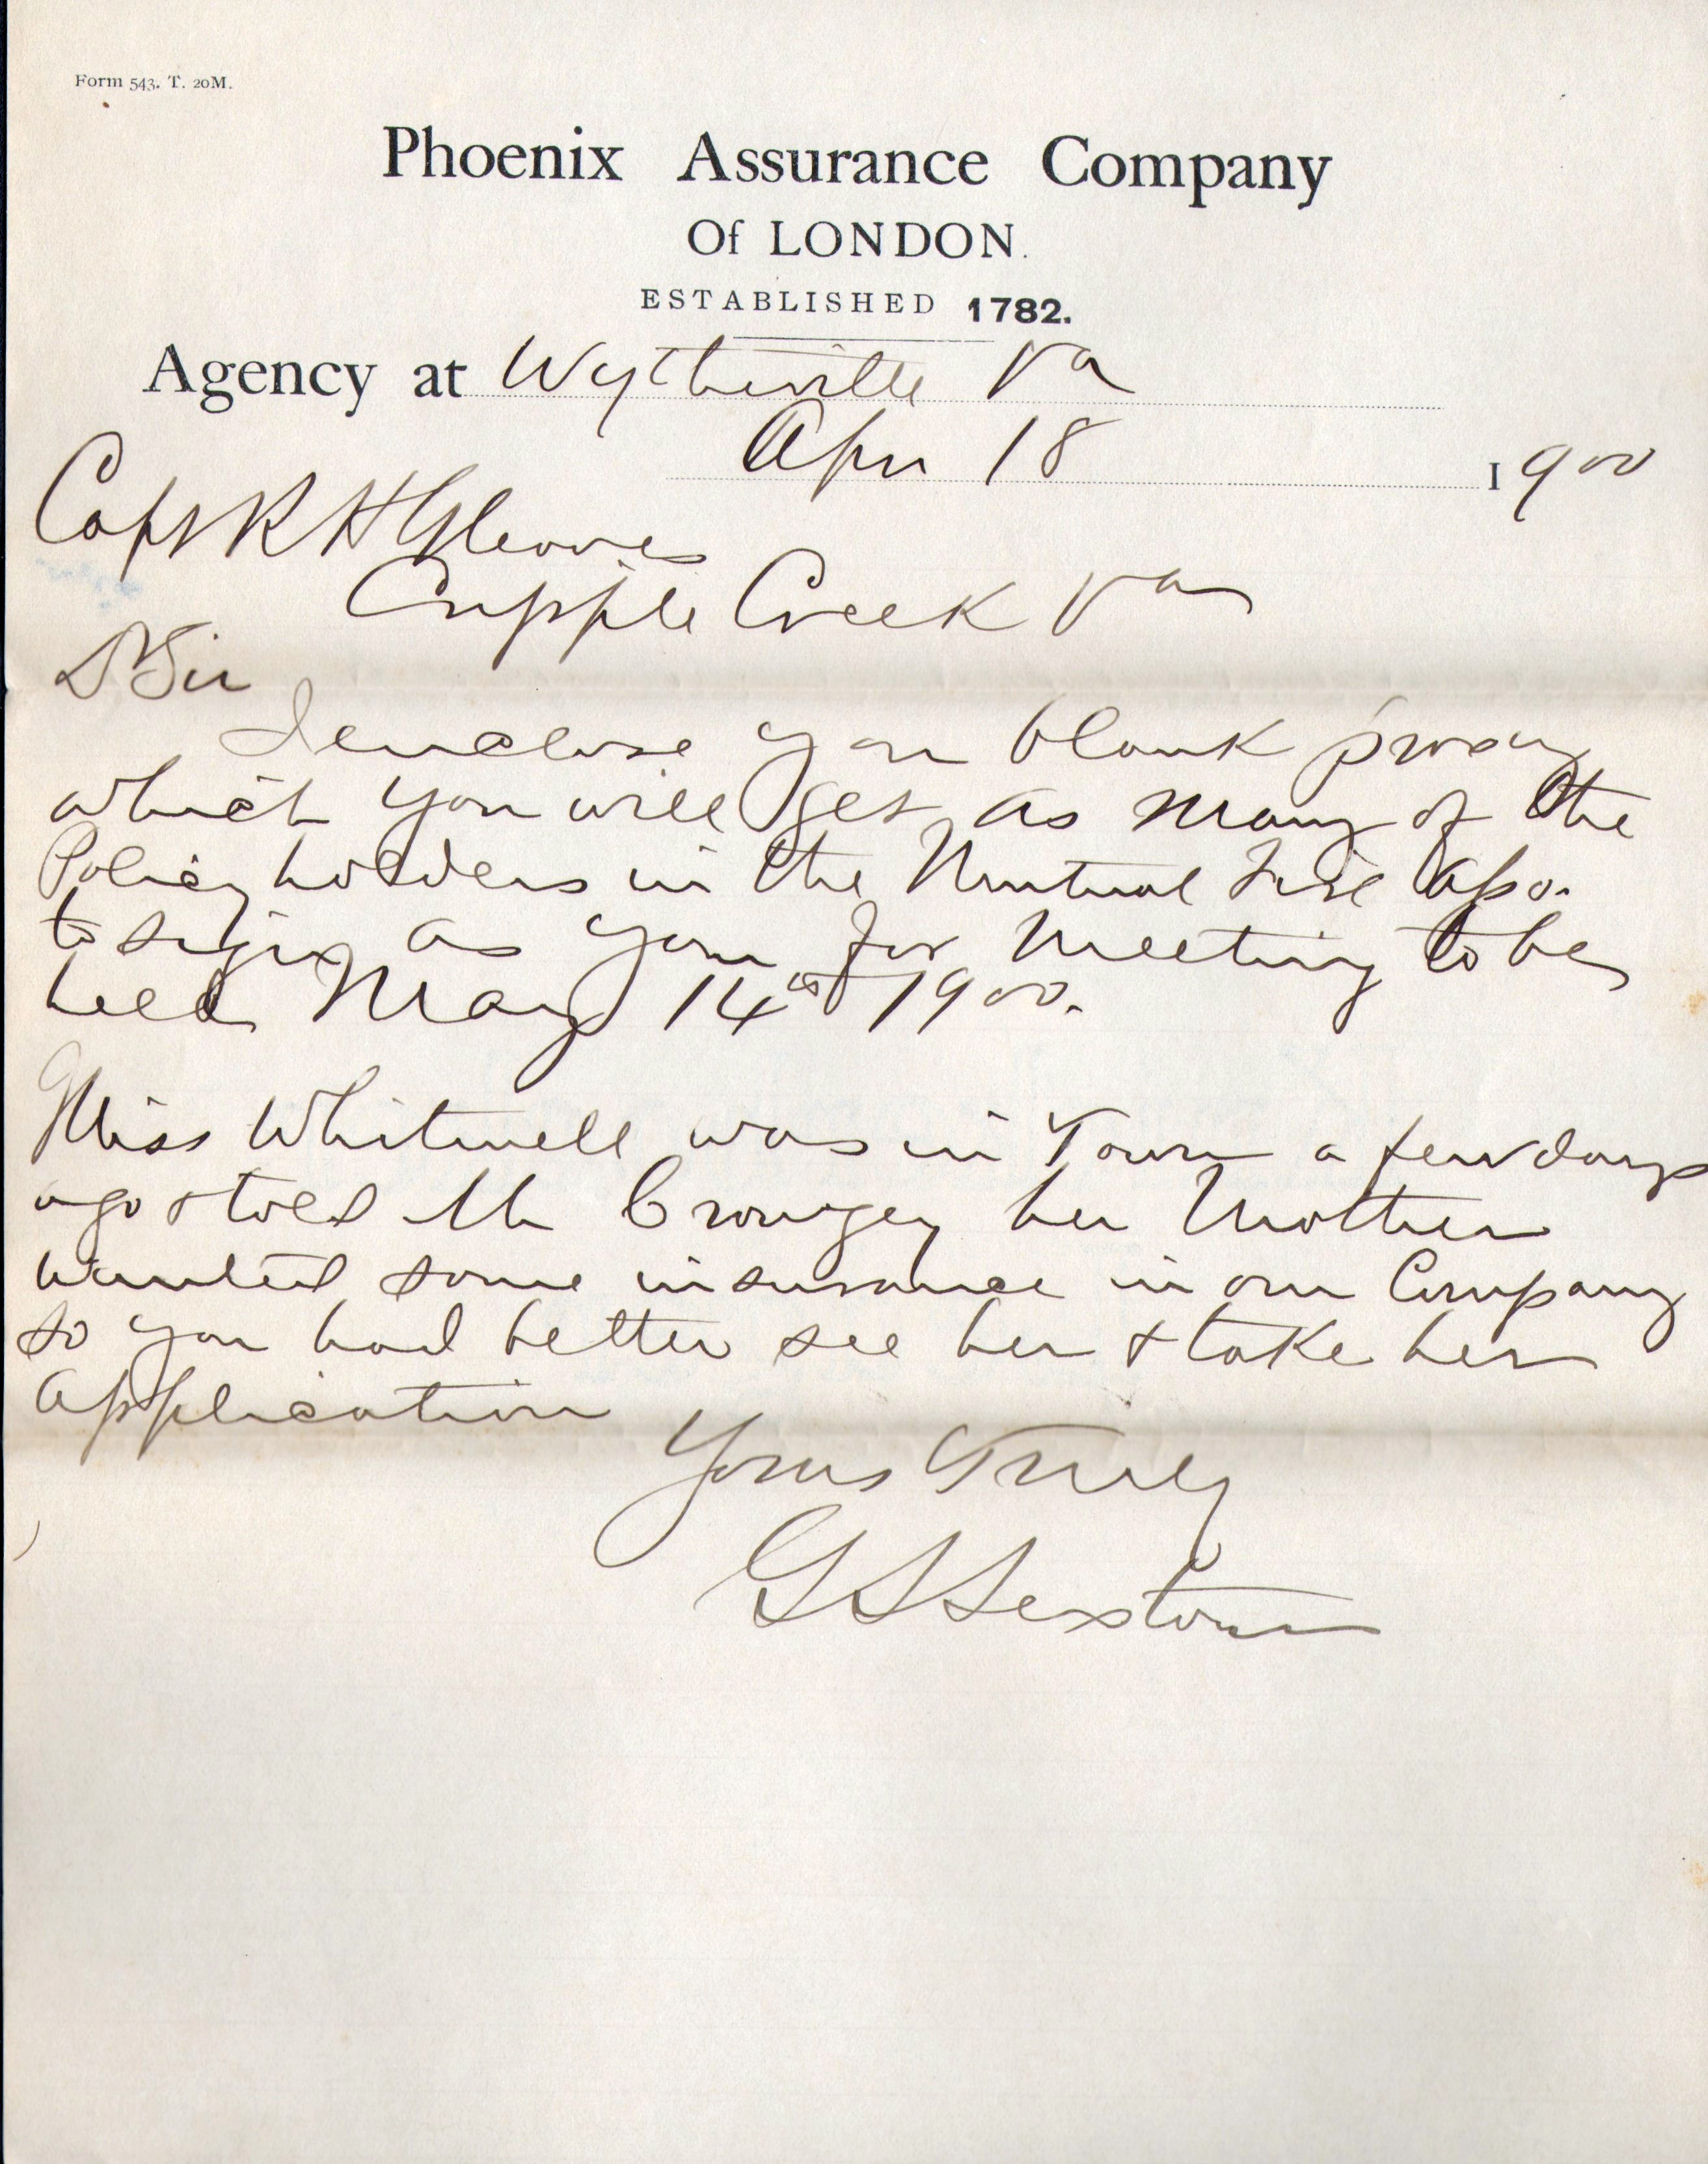 Form 543. T. 20M.
Phoenix Assurance Company
Of LONDON.
ESTABLISHED 1782.
Agency at Wytheville Va
Apr 18 1900
Capt R H Gleaves
Cripple Creek Va
D Sir
I enclose you blank proxy
which you will get as many of the
Policy holders in the Mutual Fire Asso.
to sign as you for meeting to be
held May 14th 1900.
Miss Whitwell was in Town a few days
ago & told Mr Crowgey her Mother
wanted some insurance in our Company
so you had better see her & take her
application
Yours Truly
G S Sexton